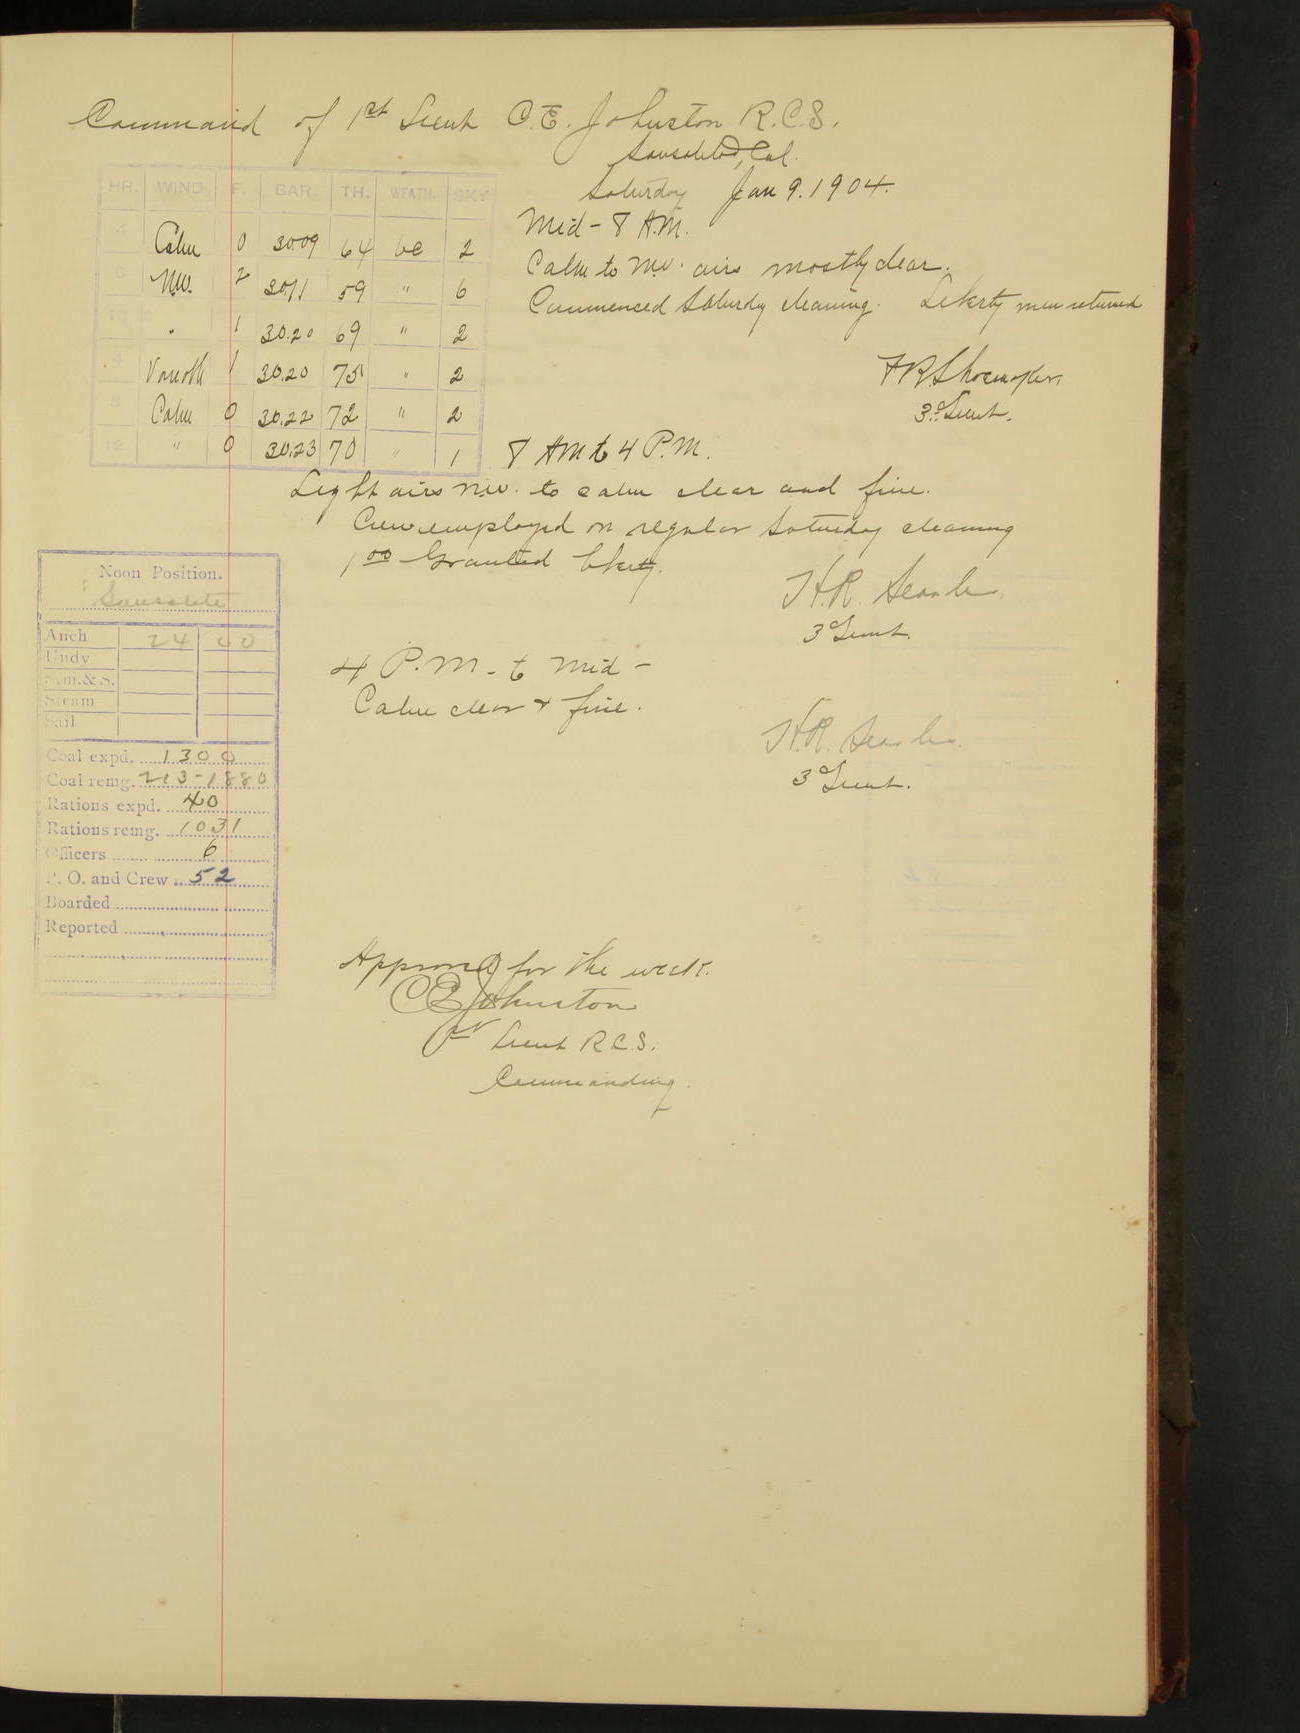 Command of 1st Lieut C.E. Johnston R.C.S.
Sausalito, Cal.
Saturday Jan 9. 1904.
HR. WIND F. BAR. TH. WEATH. SKY
4 Calm 0 3009 64 bc 2
8 NW. 2 3011 59 " 6
" 1 30.20 69 " 2
4 1 30.20 75 " 2
8 Calm 0 30.22 72 " 2
12 " 0 30.23 70 " 1
Mid - 8 A.M.
Calm to NW. airs mostly clear.
Commenced Saturday cleaning. Liberty men returned
F.R. Shoemaker.
3d Lieut.
8 AM to 4 P.M.
Light airs NW. to calm clear and fine.
Crew employed on regular Saturday cleaning
1 00 Granted liberty.
H.R. Searles.
3d Lieut.
4 P.M. - to Mid -
Calm clear & fine.
H.R. Searles.
3d Lieut.
Noon Position.
Sausalito
Anch 24 00
Undy
Stm. & S.
Steam
Sail
Coal expd. 1300
Coal remg. 213-1880
Rations expd. 40
Rations remg. 1031
Officers 6
P. O. and Crew 52
Boarded
Reported
Approved for the week.
CE Johnston
1st Lieut R.C.S.
Commanding.